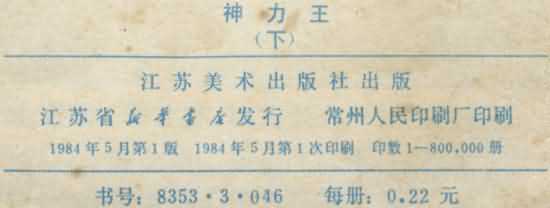 神力王
（下）
江苏美术出版社出版
江苏省新华书店发行 常州人民印刷厂印刷
1984年5月第1版 1984年5月第1次印刷 印数1—800,000册
书号：8353·3·046 每册：0.22元